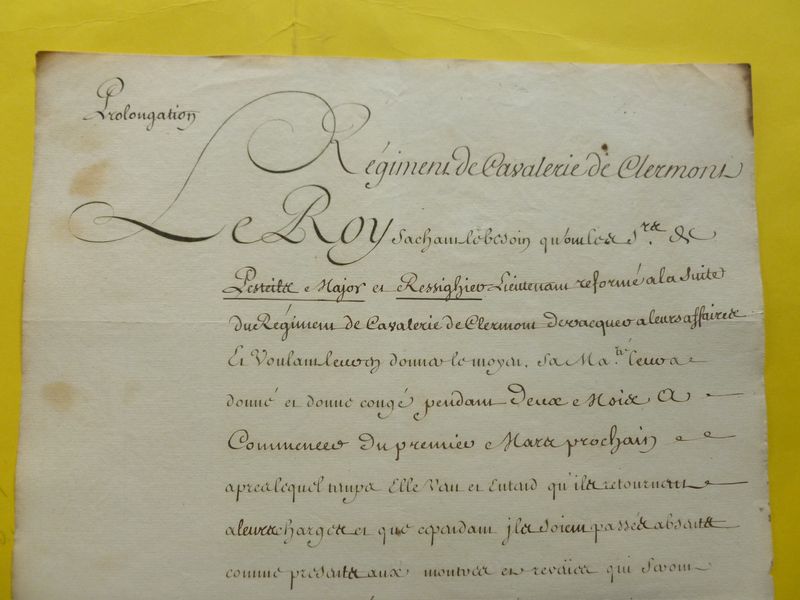 Prolongation
Régiment de Cavalerie de Clermont
Le Roy sachant le besoin qu'ont les Srs. de
Pesteils Major et Ressighier Lieutenant reformé a la suite
du Régiment de Cavalerie de Clermont de vacquer a leurs affaires
Et Voulant leur en donner le moyen, Sa Maté. leur a
donné et donne congé pendant Deux Mois A
Commencer du premier Mars prochain
apres lequel temps Elle Veut et Entend qu'ils retournent
a leurs charges et que cependant jls soient passés absents
comme presents aux montres et reveües qui seront